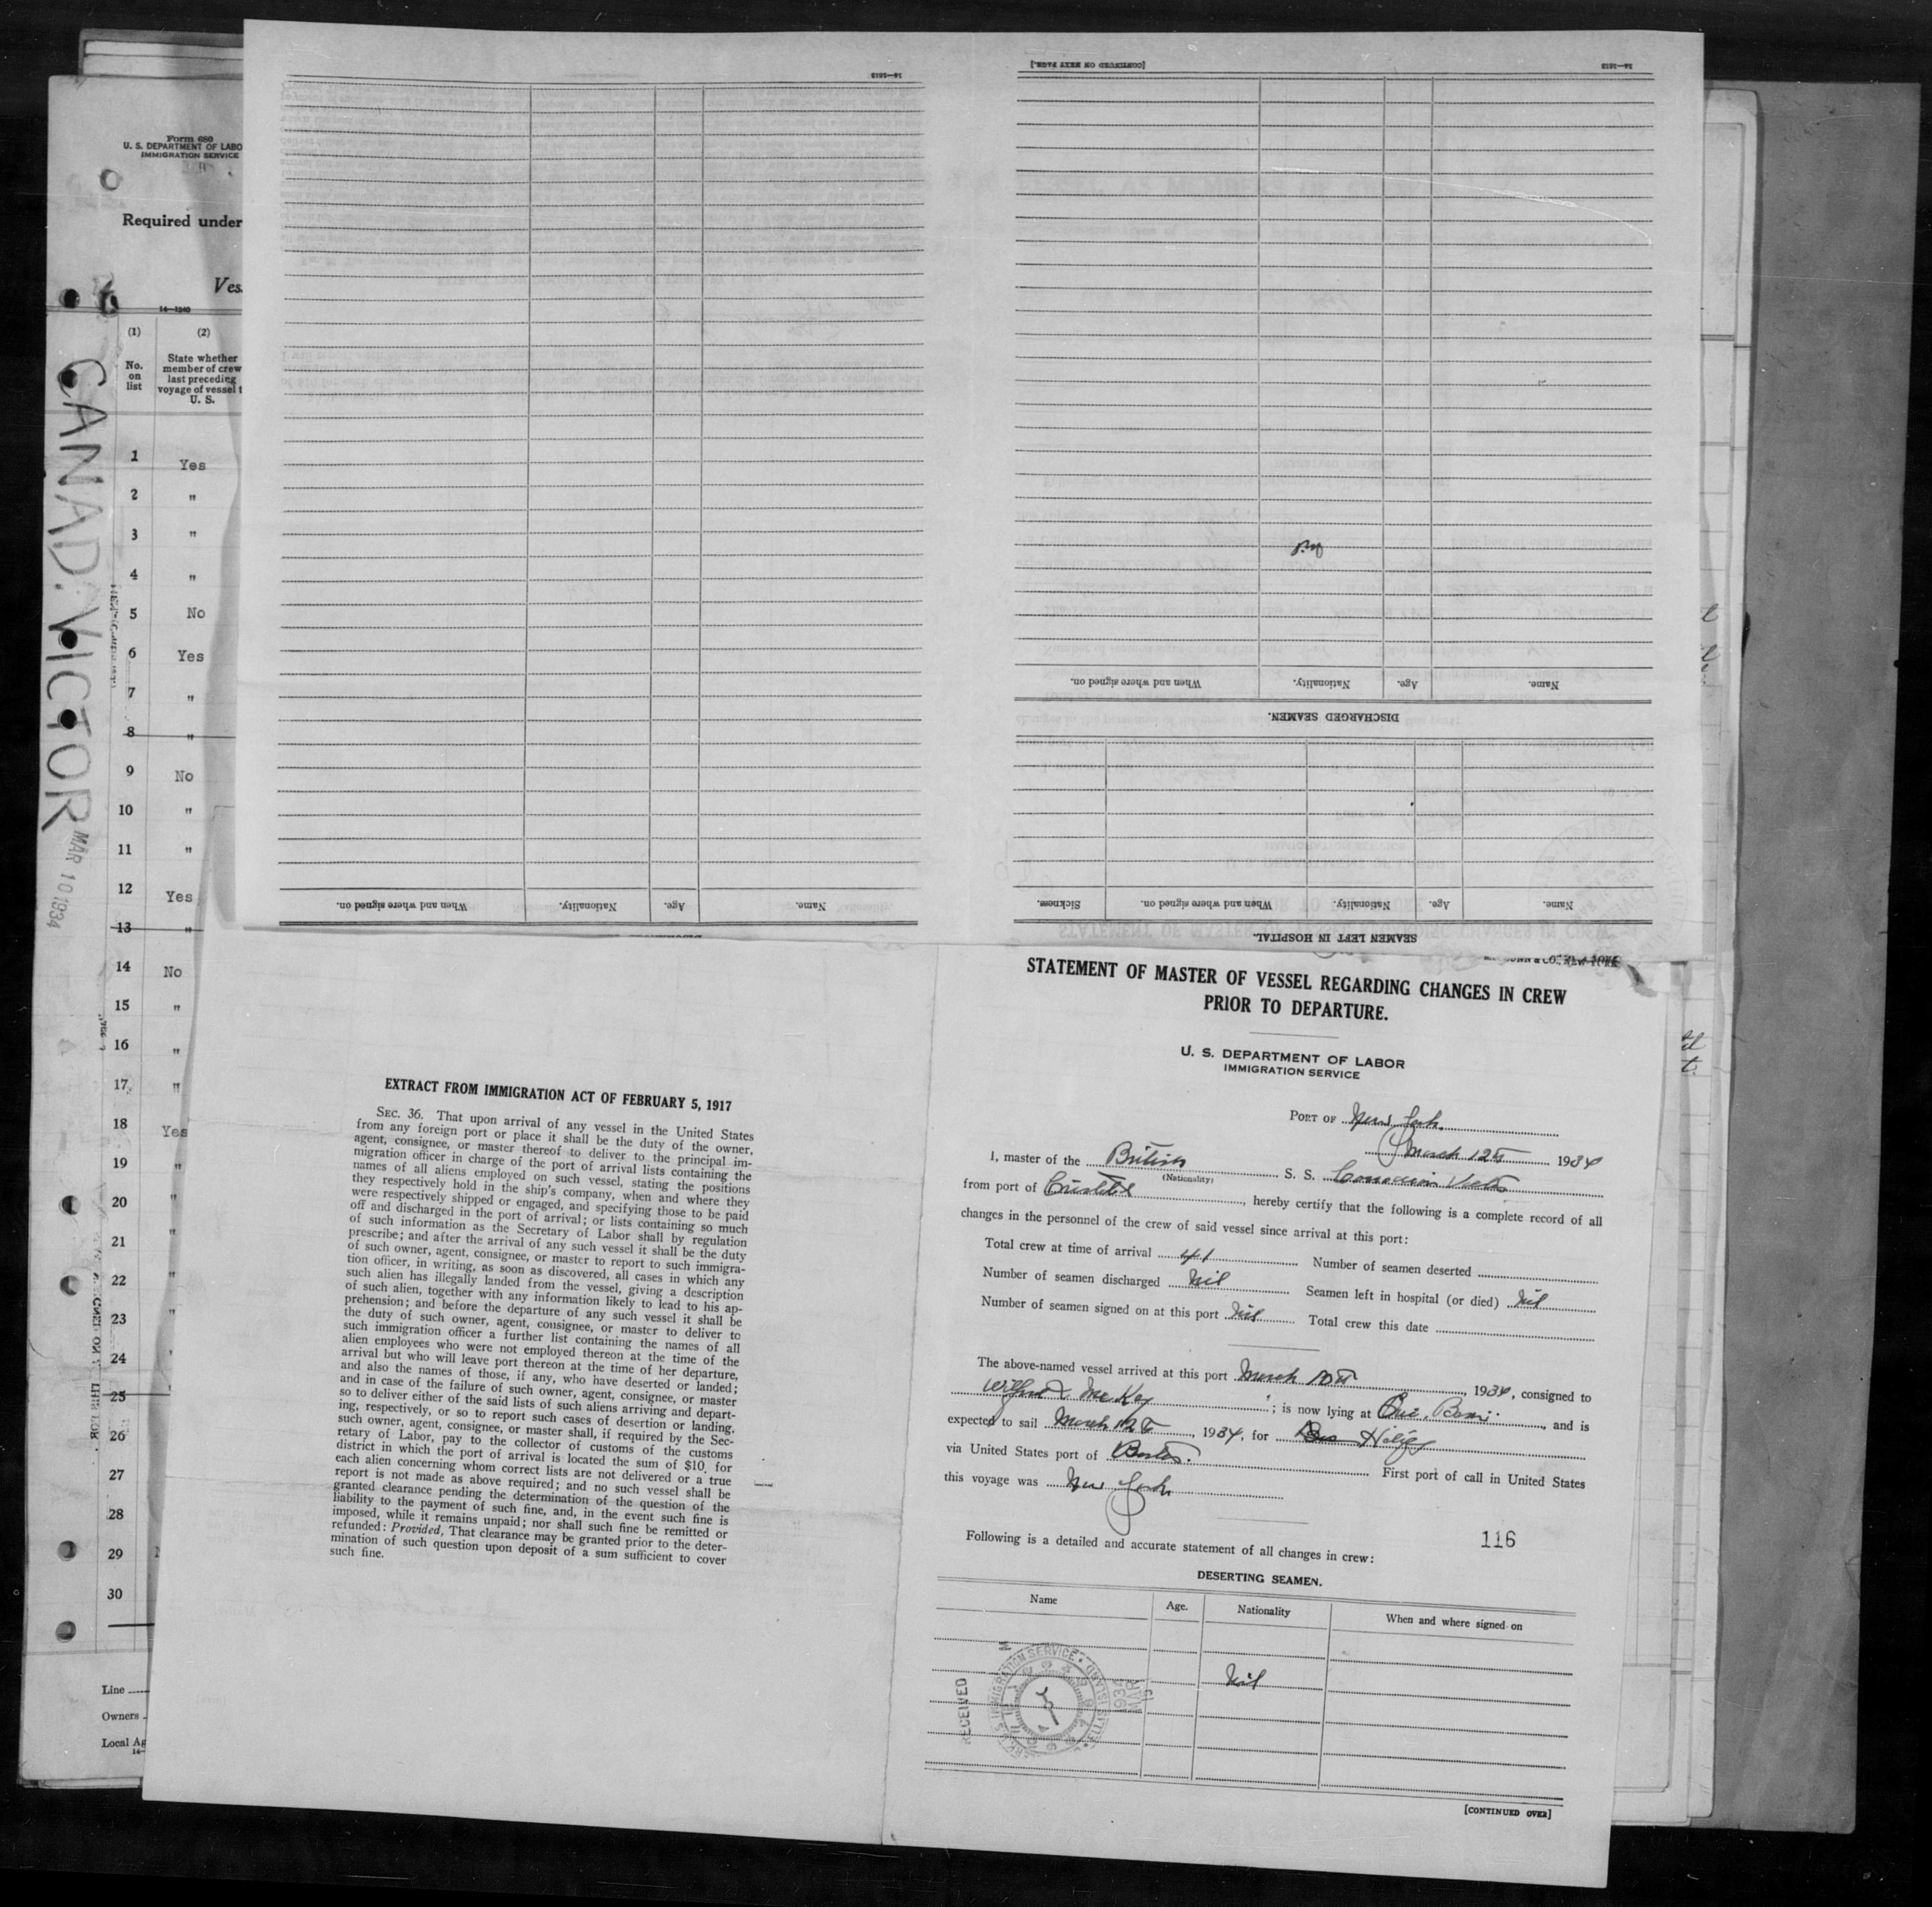 Form 680
U. S. DEPARTMENT OF LABO
IMMIGRATION SERVICE
Required under
Ves
14—1240
(1) (2)
No. on list
State whether member of crew last preceding voyage of vessel t U. S.
1 Yes
2 "
3 "
4 "
5 No
6 Yes
7 "
8 "
9 No
10 "
11 "
12 Yes
13 "
14 No
15 "
16 "
17 "
18 Yes
19 "
20 "
21 "
22 "
23 "
24 "
25
26
27
28
29
30
Line
Owners
Local Ag
CANAD. VICTOR
MAR 10 1934
14—1613
[CONTINUED ON NEXT PAGE.]
14—1613
Nil
Name. Age. Nationality. When and where signed on.
DISCHARGED SEAMEN.
Name. Age. Nationality. When and where signed on. Sickness.
SEAMEN LEFT IN HOSPITAL.
Name. Age. Nationality. When and where signed on.
EXTRACT FROM IMMIGRATION ACT OF FEBRUARY 5, 1917
SEC. 36. That upon arrival of any vessel in the United States
from any foreign port or place it shall be the duty of the owner,
agent, consignee, or master thereof to deliver to the principal im-
migration officer in charge of the port of arrival lists containing the
names of all aliens employed on such vessel, stating the positions
they respectively hold in the ship's company, when and where they
were respectively shipped or engaged, and specifying those to be paid
off and discharged in the port of arrival; or lists containing so much
of such information as the Secretary of Labor shall by regulation
prescribe; and after the arrival of any such vessel it shall be the duty
of such owner, agent, consignee, or master to report to such immigra-
tion officer, in writing, as soon as discovered, all cases in which any
such alien has illegally landed from the vessel, giving a description
of such alien, together with any information likely to lead to his ap-
prehension; and before the departure of any such vessel it shall be
the duty of such owner, agent, consignee, or master to deliver to
such immigration officer a further list containing the names of all
alien employees who were not employed thereon at the time of the
arrival but who will leave port thereon at the time of her departure,
and also the names of those, if any, who have deserted or landed;
and in case of the failure of such owner, agent, consignee, or master
so to deliver either of the said lists of such aliens arriving and depart-
ing, respectively, or so to report such cases of desertion or landing,
such owner, agent, consignee, or master shall, if required by the Sec-
retary of Labor, pay to the collector of customs of the customs
district in which the port of arrival is located the sum of $10 for
each alien concerning whom correct lists are not delivered or a true
report is not made as above required; and no such vessel shall be
granted clearance pending the determination of the question of the
liability to the payment of such fine, and, in the event such fine is
imposed, while it remains unpaid; nor shall such fine be remitted or
refunded: Provided, That clearance may be granted prior to the deter-
mination of such question upon deposit of a sum sufficient to cover
such fine.
STATEMENT OF MASTER OF VESSEL REGARDING CHANGES IN CREW
PRIOR TO DEPARTURE.
U. S. DEPARTMENT OF LABOR
IMMIGRATION SERVICE
PORT OF New York.
March 12th 1934
I, master of the British S. S. Canadian Victor
(Nationality)
from port of Cristobal, hereby certify that the following is a complete record of all
changes in the personnel of the crew of said vessel since arrival at this port:
Total crew at time of arrival 41 Number of seamen deserted
Number of seamen discharged Nil Seamen left in hospital (or died) Nil
Number of seamen signed on at this port Nil Total crew this date
The above-named vessel arrived at this port March 10th, 1934, consigned to
McKay; is now lying at Erie Basin, and is
expected to sail March 12th, 1934, for Halifax
via United States port of Boston. First port of call in United States
this voyage was New York
116
Following is a detailed and accurate statement of all changes in crew:
DESERTING SEAMEN.
Name Age. Nationality When and where signed on
Nil
RECEIVED
IMMIGRATION SERVICE
ELLIS ISLAND
1934 MAR
[CONTINUED OVER]